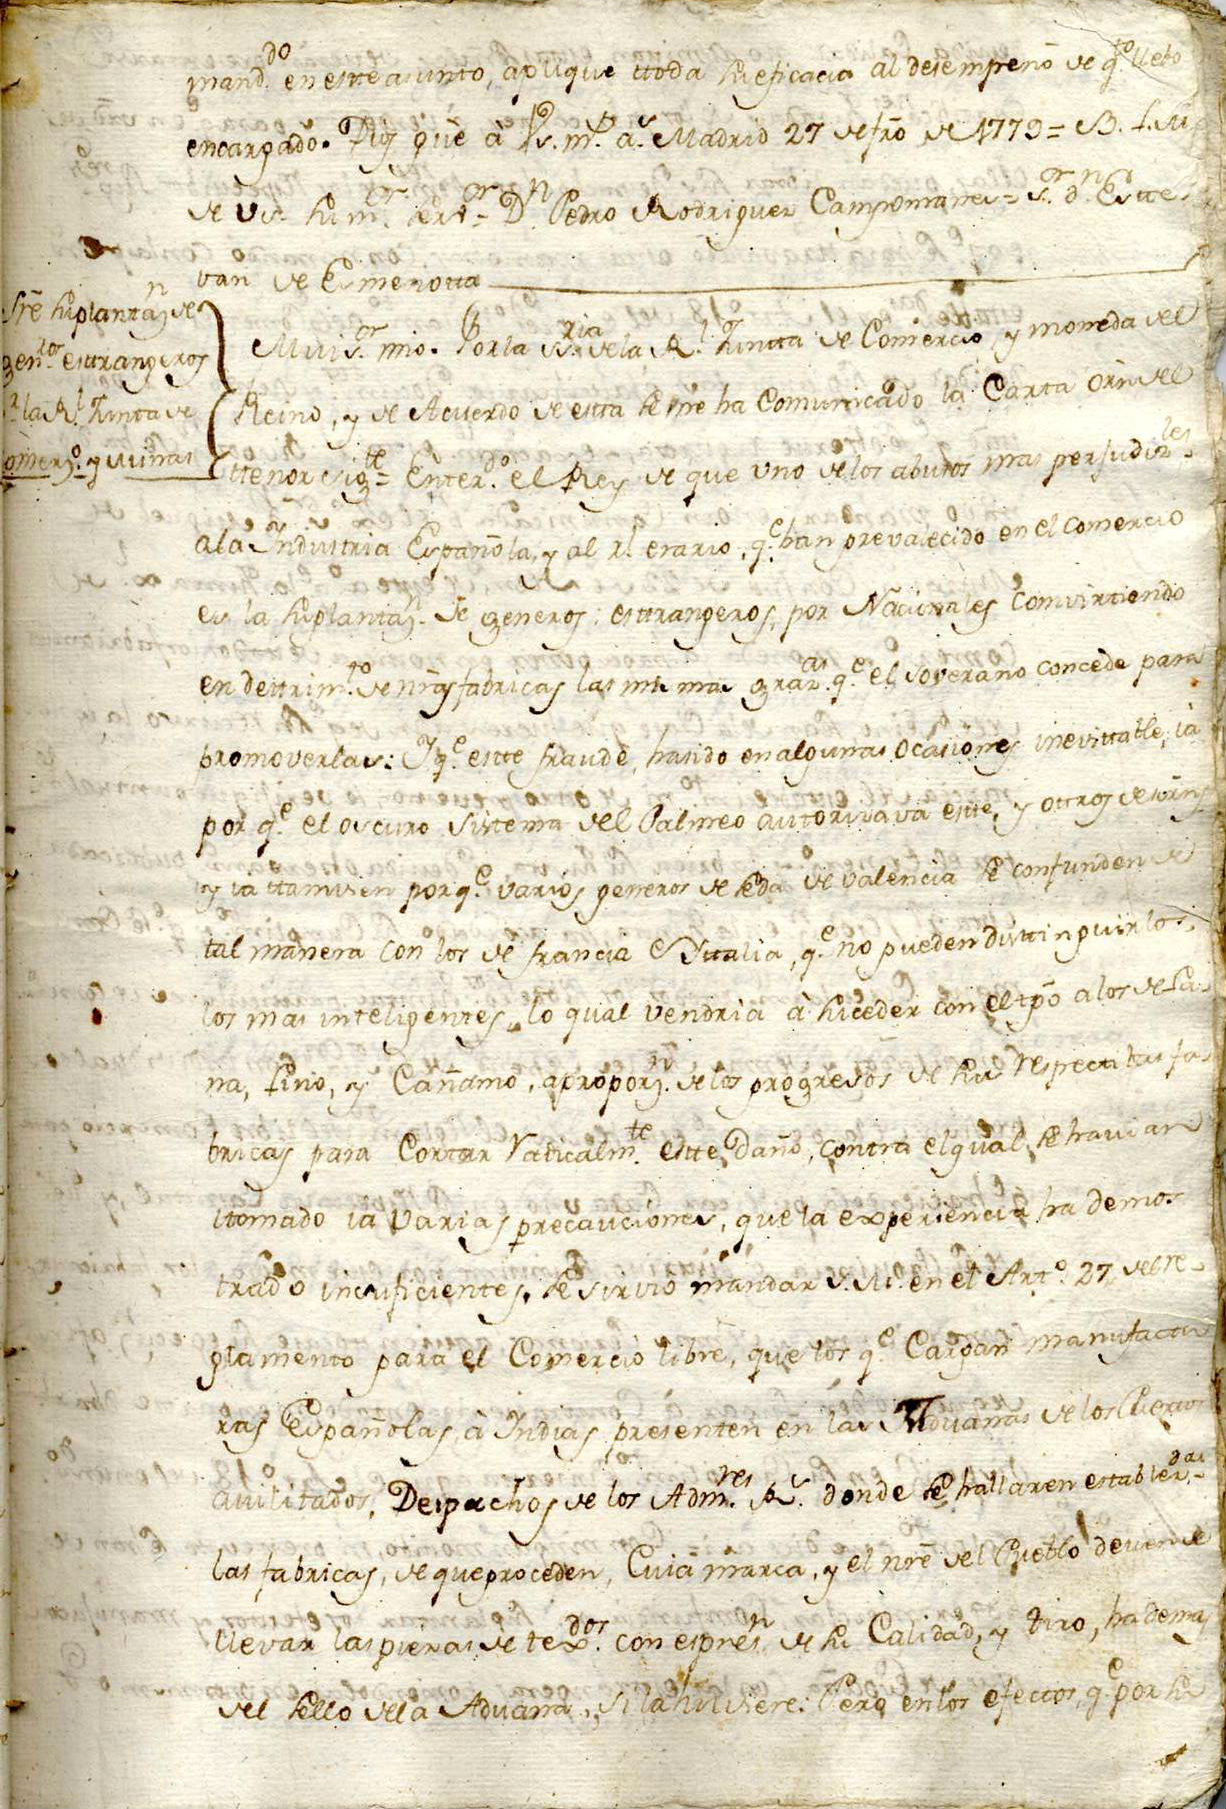 mand.do en este asunto, aplique ttoda su eficacia al desempeño de q.to llebo
encargado. Dios gûe à Vs. m.s a.s Madrid 27 de fro de 1779 = B. L. M.
de Vs. su m.or serv.or = D.n Pedro Rodriguez Campomanes = S.or d.n Estte
van de Esmenotta
Sre suplantaz.n de
gen.ros estrangeros
la R.l Juntta de
omerz.o y Minas
Mui s.or mio. Por la S.ria de la R.l Juntta de Comercio, y moneda del
Reino, y de Acuerdo de esta se me ha Comunicado la Carta orñ del
ttenor sig.te = Enter.do el Rey de que uno de los abusos mas perjudiz.les
a la Yndustria Española, y al rl. erario, q.e han prevalecido en el comercio
es la suplantaz.n de generos estrangeros, por Nacionales convirtiendo
en dettrim.to de nras fabricas las mismas graz.as q.e el Soverano concede para
promoverlas: Y q.e este fraude, ha sido en algunas Ocasiones inevittable, ia
por q.e el oscuro Sistema del Palmeo autorizava este, y ottros desorñs
y ia ttamvien porq.e varios generos de seda de Valencia se confunden de
tal manera con los de francia e Yttalia, q.e no pueden disttinguirlos
los mas inteligentes, lo qual vendria à suceder con el tpõ a los de La
na, Lino, y Cañamo, a proporz.n de los progresos de sus respectivas fa
bricas para Cortar Radicalm.te este Daño, contra el qual se havian
ttomado ia varias precauciones, que la experiencia ha demos
trado insuficientes, se sirvio mandar S. M. en el Art.o 27 del re
glamento para el Comercio libre, que los q.e Cargan manufactu
ras Españolas, à Indias presenten en las Aduanas de los Puertos
avilitados, Despachos de los Adm.res R.s donde se hallaren establez.das
las fabricas, de que proceden, Cuia marca, y el nre del Pueblo deven de
llevar las piezas de tex.dos con espres.n de su Calidad, y tiro, ha demas
del sello de la Aduana, si la huviere: Pero en los efectos, q.e por su